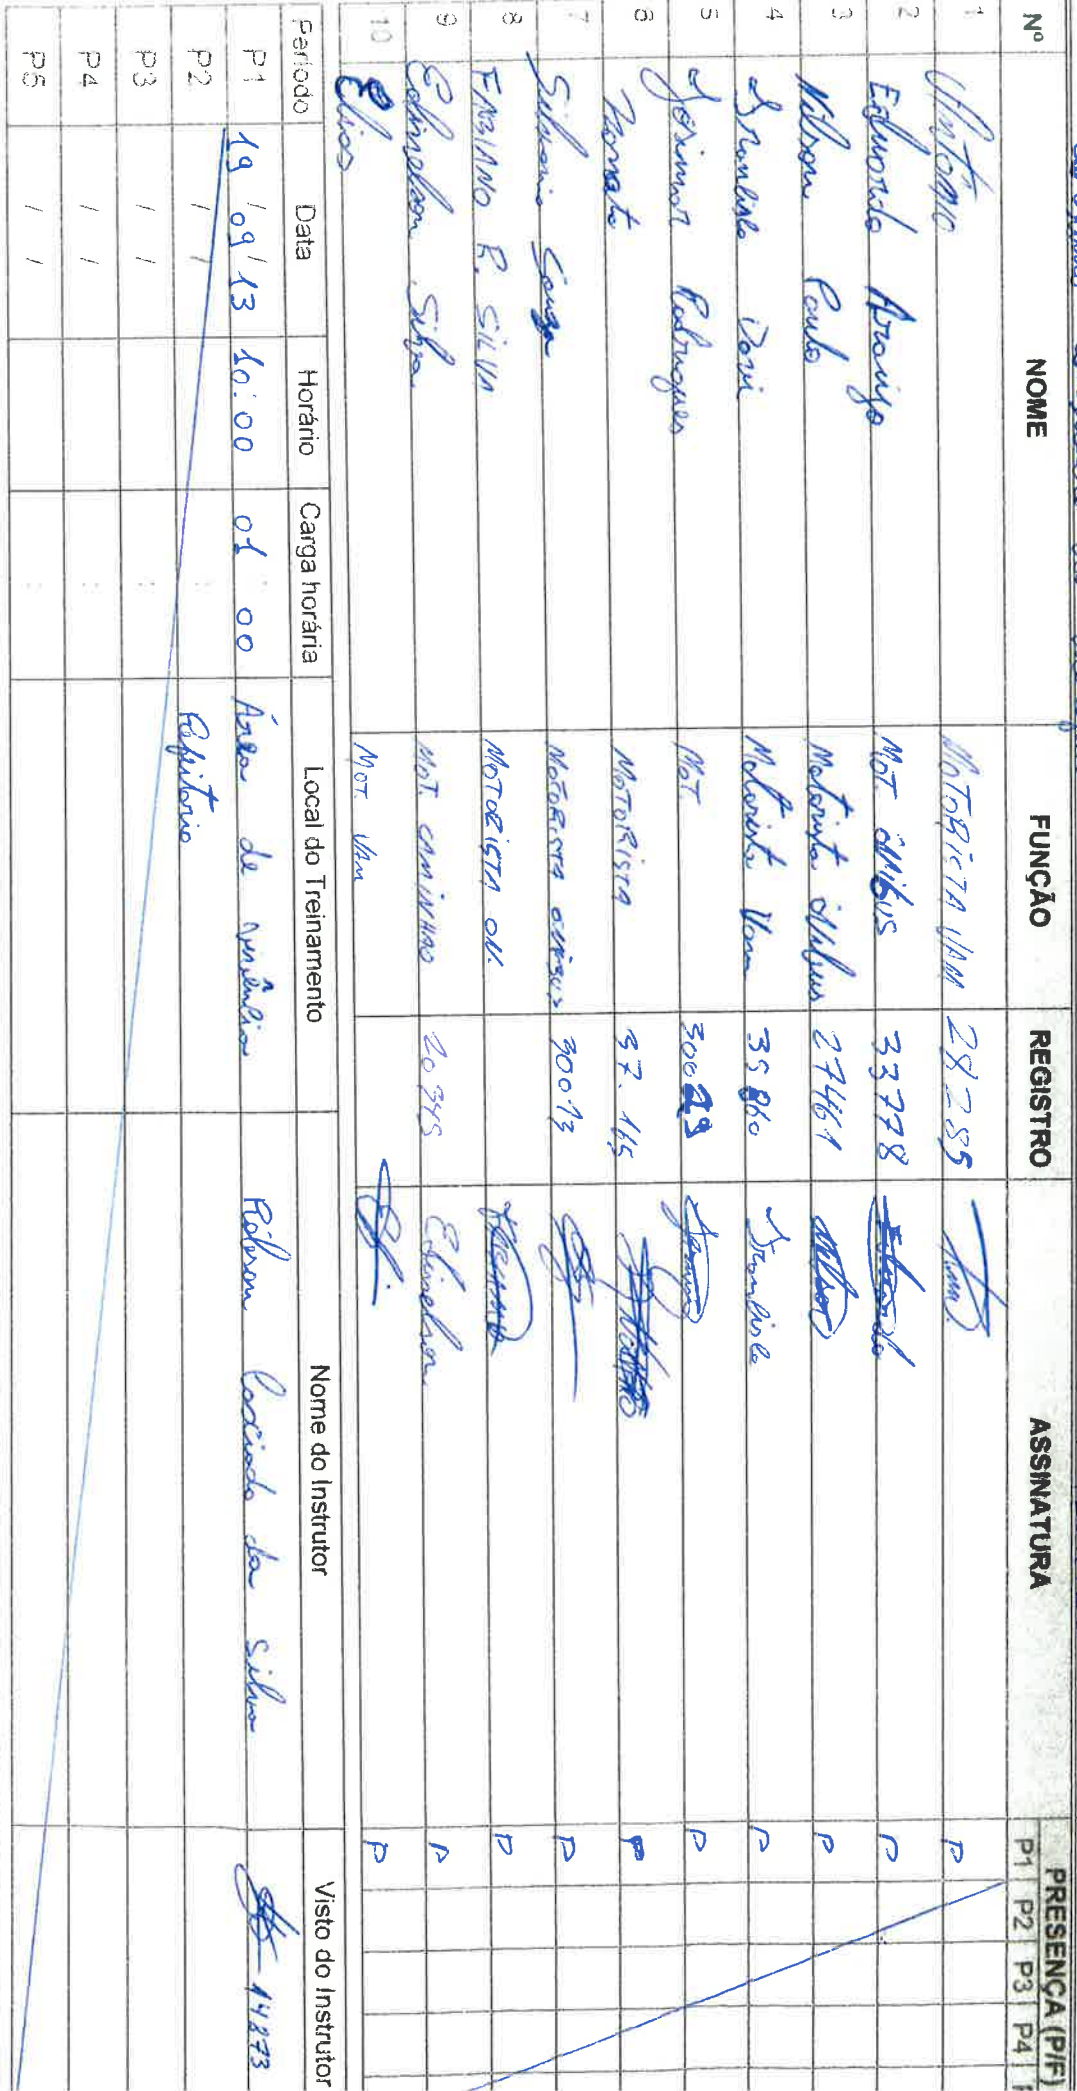 Nº NOME FUNÇÃO REGISTRO ASSINATURA PRESENÇA (P/F)
P1 P2 P3 P4
1 Antonio MOTORISTA VAN 28285 P
2 Eduardo Araujo MOT. ÔNIBUS 33778 Eduardo P
3 Nilson Paulo Motorista ônibus 27461 Nilson P
4 Davi Motorista Van 35860 P
5 Josimar Rodrigues MOT. P
6 Nonato MOTORISTA 37.165 P
7 Silvanio Souza MOTORISTA ONIBUS 30013 P
8 FABIANO R. SILVA MOTORISTA ON. P
9 Edinelson Silva MOT. CAMINHÃO 20345 Edinelson P
10 Elias MOT. VAN P
Período Data Horário Carga horária Local do Treinamento Nome do Instrutor Visto do Instrutor
P1 19 / 09 / 13 10:00 01 : 00 Área de vivência Robson da Silva 14873
P2 / / : Refeitório
P3 / / :
P4 / / :
P5 / / :